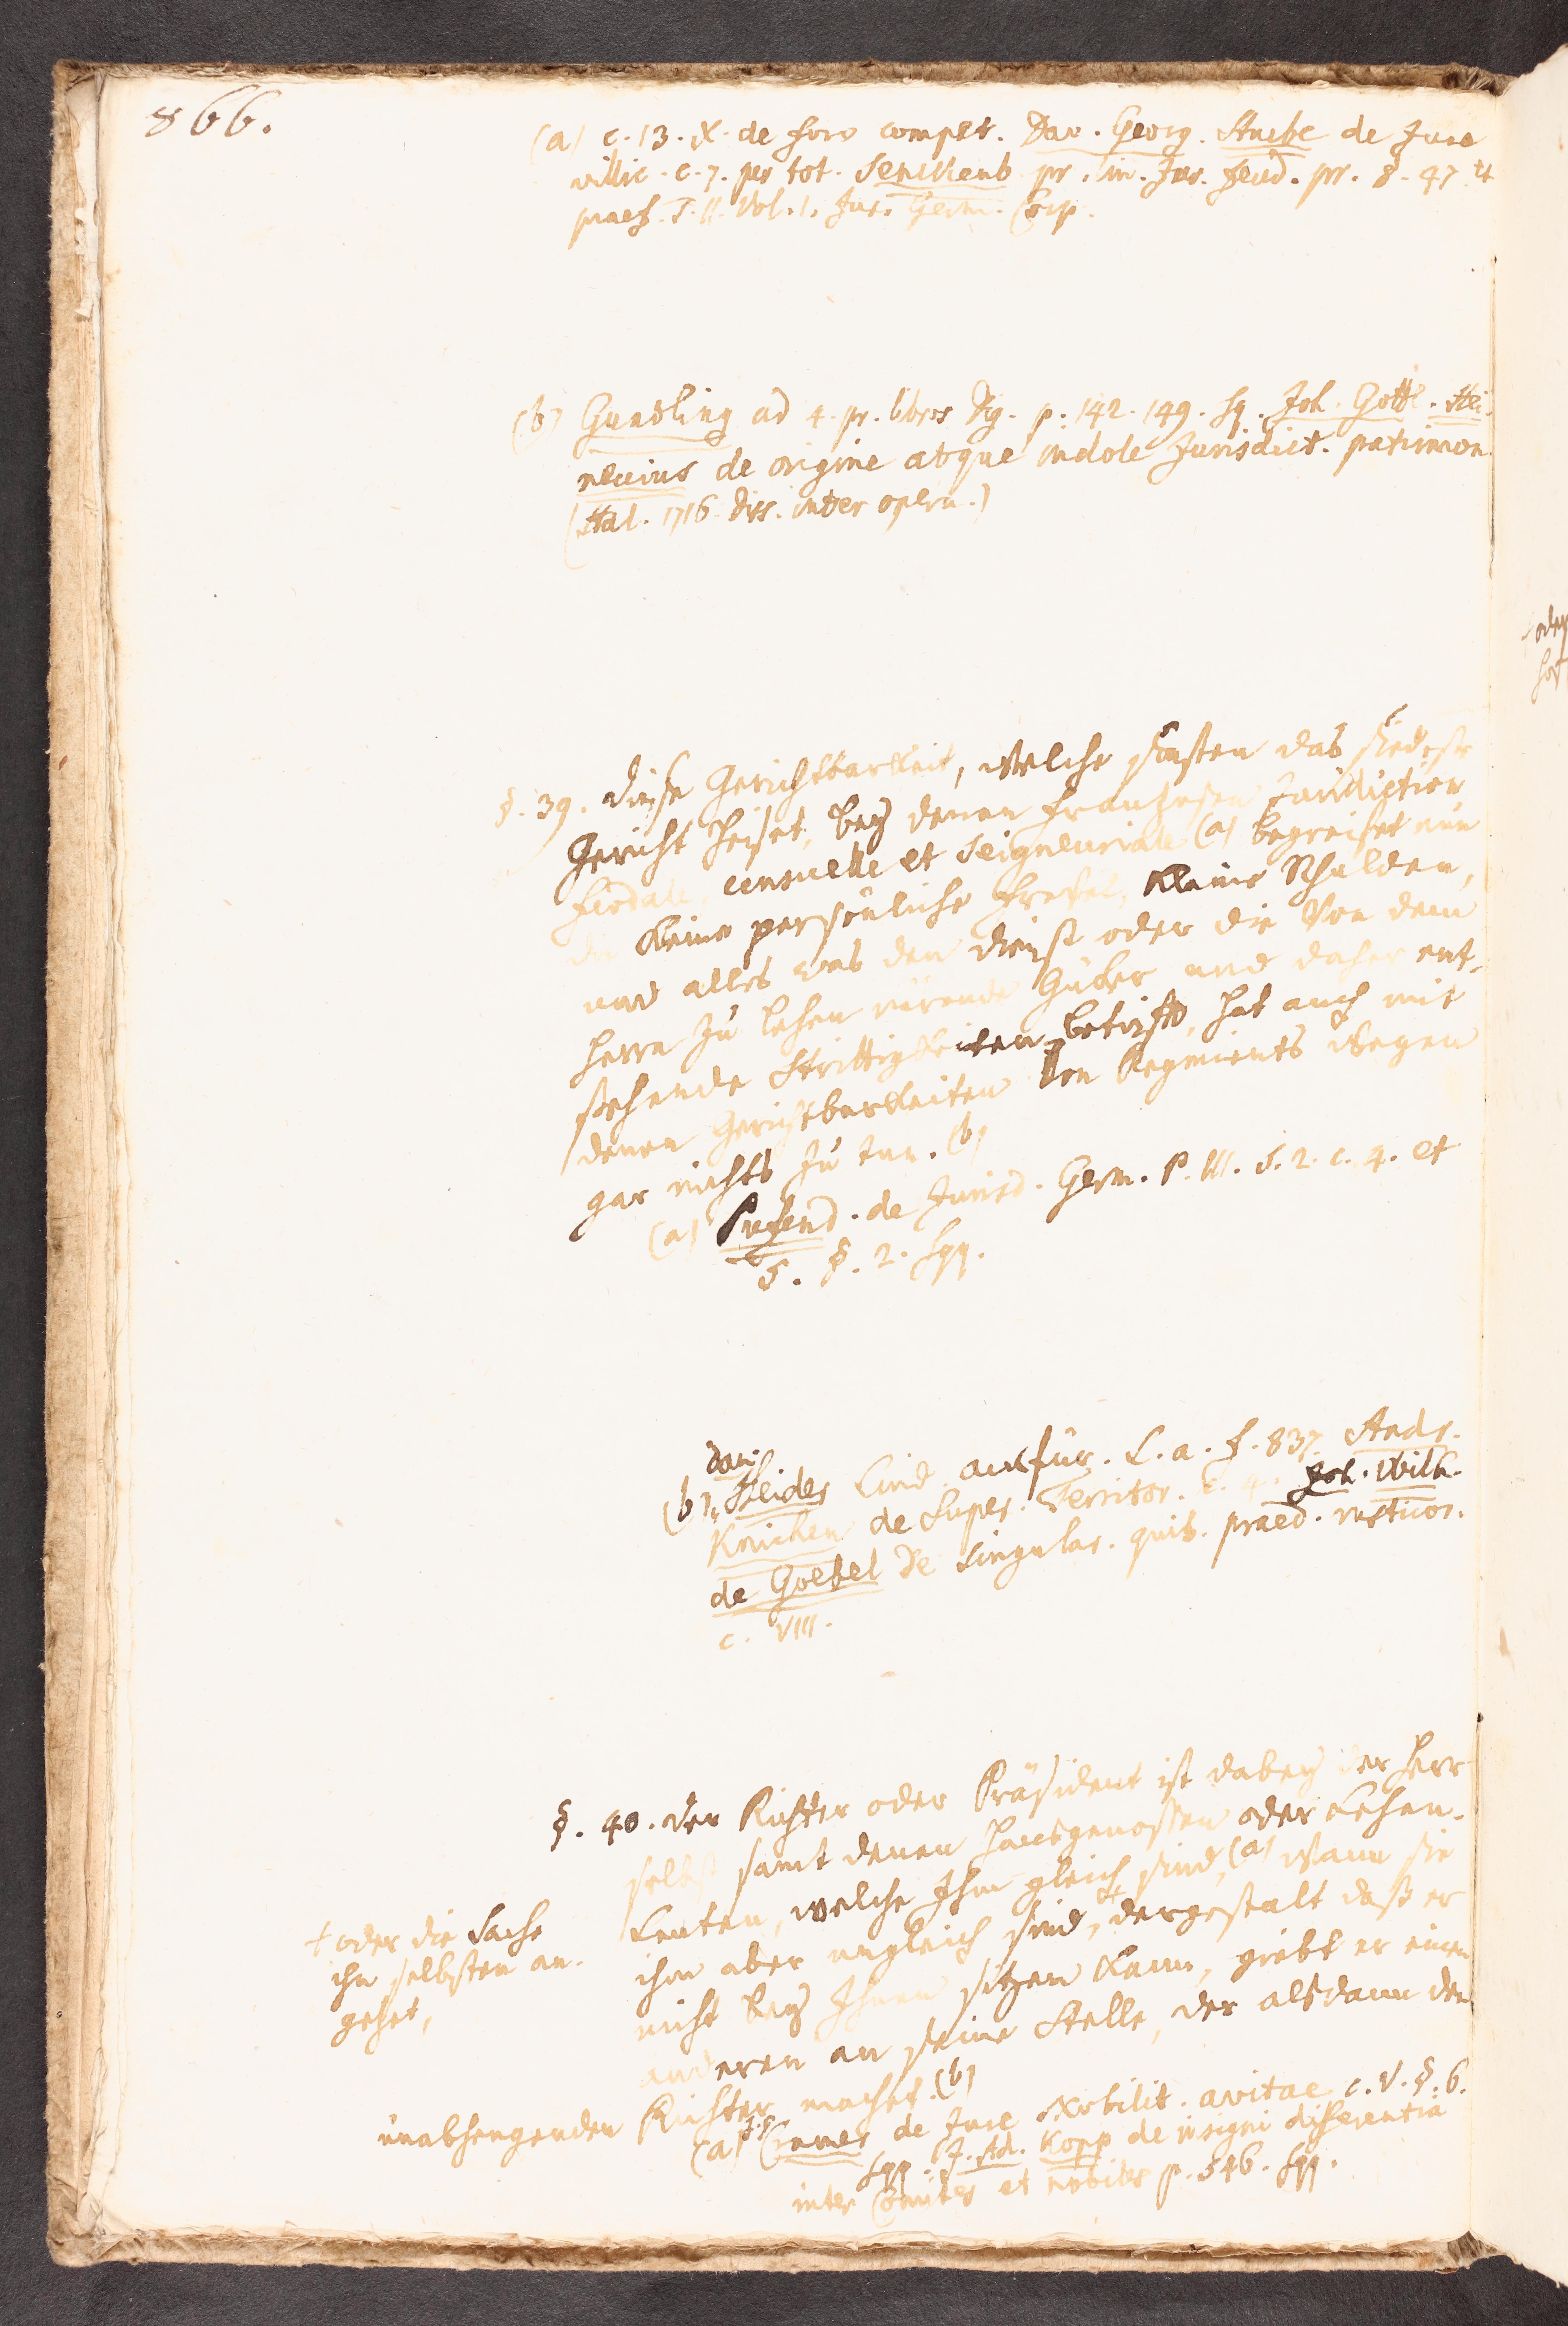 866.
(a) c. 13. X. de foro compet. Dav. Georg. Strube de Jure
villic. c. 7. per tot. Senckenb. pr. lin. Jur. feud. pr. 8. 47. et
praef. T. II. Vol. 1. Jur. Germ. Corp.
(b) Gundling ad 4. pr. libros Dig. p. 142. 149. sq. Joh. Gottl. Hei-
neccius de origine atque indole Jurisdict. patrimon.
(Hal. 1716. diss. inter opera.)
§. 39. diese Gerichtbarkeit, welche sonsten das
Gericht heiset, bey denen Franzosen Jurisdiction
feodale, censuelle et Seigneuriale (a) begreifet nun
die kleine persönliche Frevel, kleine Schulden,
und alles was den dienst oder die von dem
Herrn zu Lehen rürende Güter und daher ent-
stehende Strittigkeiten betrifft, hat auch mit
denen Gerichtbarkeiten von Regiments wegen
gar nichts zu tun. (b)
(a) Pufend. de Jurisd. Germ. P. III. S. 2. c. 4. et
5. §. 2. sqq.
(b) Heider Lind. ausfür. L. a. f. 837. Andr.
Knichen de Super. Territor. c. 4. Joh. Wilh.
de Goebel de singular. quib. praed. rusticor.
c. VIII.
§. 40. der Richter oder Präsident ist dabey der Herr
selbst samt denen Hausgenossen oder Lehen-
Leuten, welche Ihm gleich sind, (a) wann sie
ihm aber ungleich sind, + dergestalt daß er
nicht bey Ihnen sitzen kann, giebt er einen
anderen an seine Stelle, der alsdann den
unabhengenden Richter machet. (b)
+ oder die Sache
ihn selbsten an-
gehet,
(a) Cramer de Jure Nobilit. avitae c. V. §. 6.
sqq. J. Ad. Kopp de insigni differentia
inter Comites et nobiles p. 346. sqq.